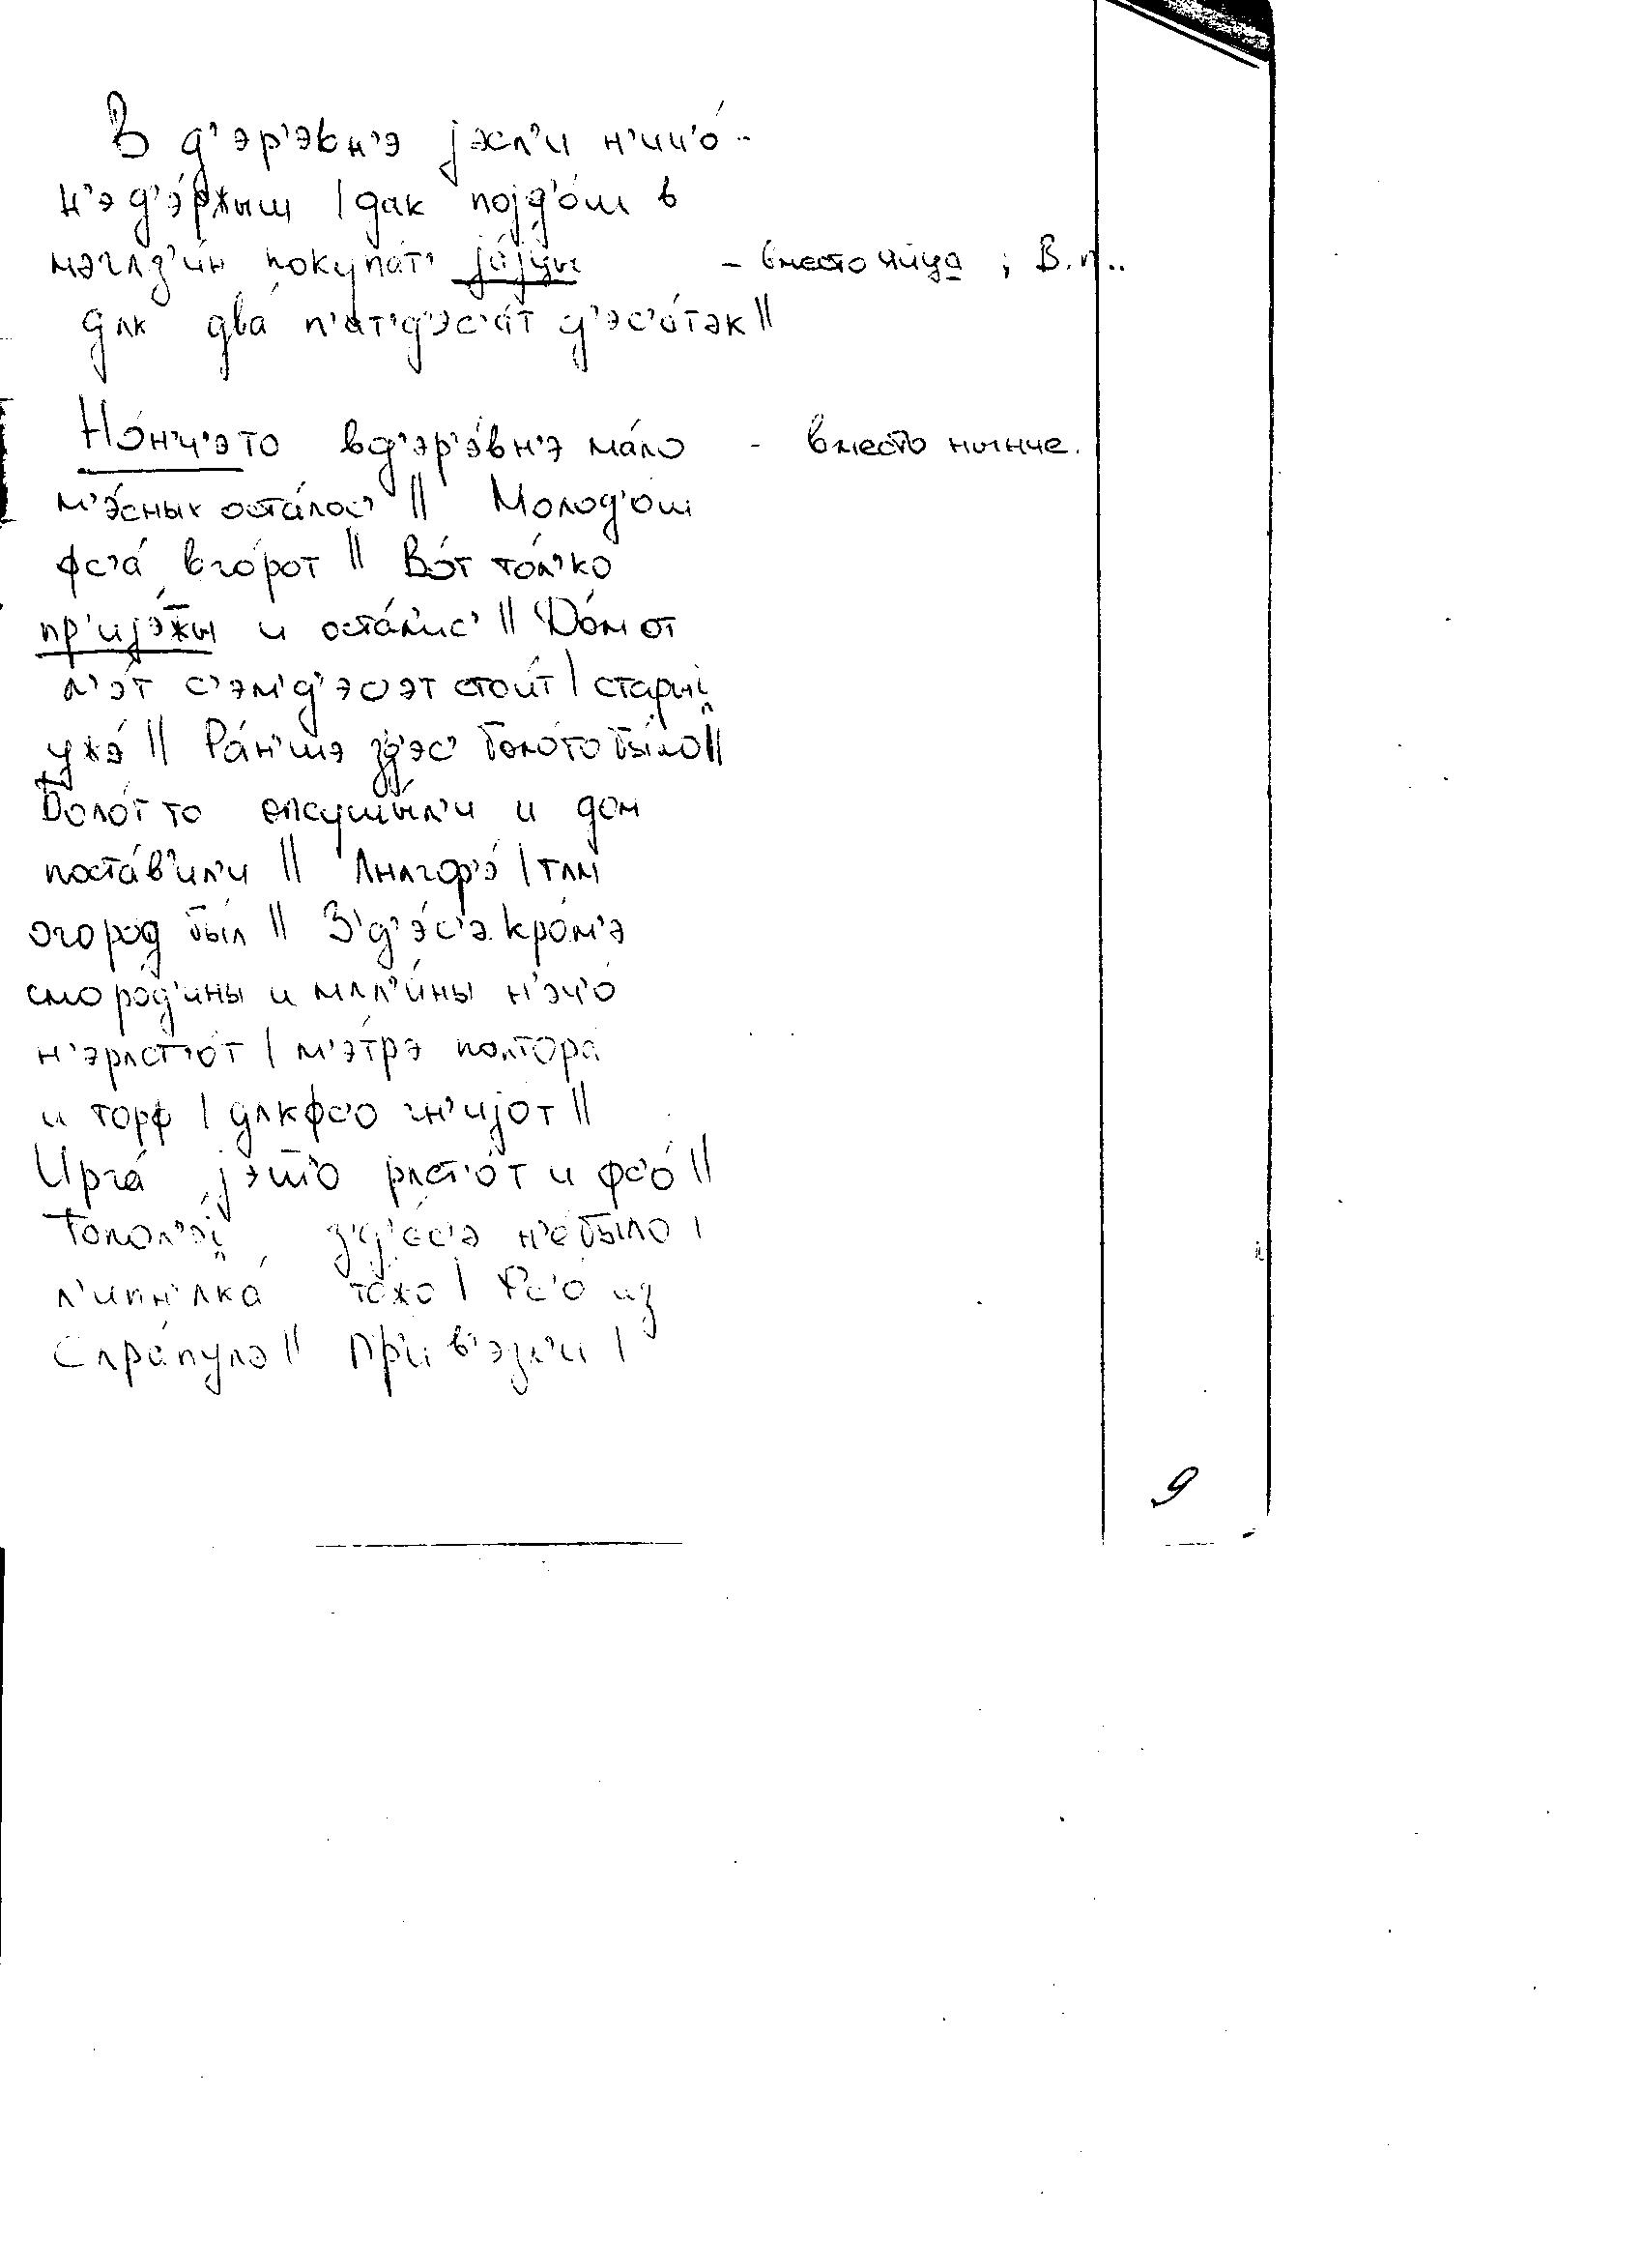 В д'эр'эвн'э jэсл'и н'ич'о́
н'эд'э́ржыш | дак поjд'о́ш в
мэгʌз'и́н покупа́т' jа́jцы – вместо яйца ; В.п..
дʌк два́ п'ат'д'эс'а́т д'эс'а́тэк ||
Но́н'ч'это вд'эр'э́вн'э ма́ло - вместо нынче.
м'э́сных оста́лос' || Молод'о́ш
фс'а́ вго́рот || Во́т то́л'ко
пр'иjэ́жы и оста́л'ис' || До́м от
л'э́т с'эм'д'эсэт стои́т | ста́рыi
ужэ́ || Ра́н'шэ зд'эс' боло́то бы́ло ||
Боло́т то осушы́л'и и дом
поста́в'ил'и || ʌнʌгор'э́ | тʌм
огоро́д был || З'д'э́с'э кро́м'э
сморо́д'ины и мʌл'и́ны н'эч'о́
н'эрʌст'о́т | м'э́трэ полтора́
и торф | дʌкфс'о гн'иjот ||
Ирга́ jэшто рʌст'о́т и фс'о́ ||
Топол'э́i з'д'е́с'э н'е́было |
л'ипн'ʌка́ то́жо | Фс'о́ из
Сʌра́пулэ || Пр'ив'эзл'и́ |
9